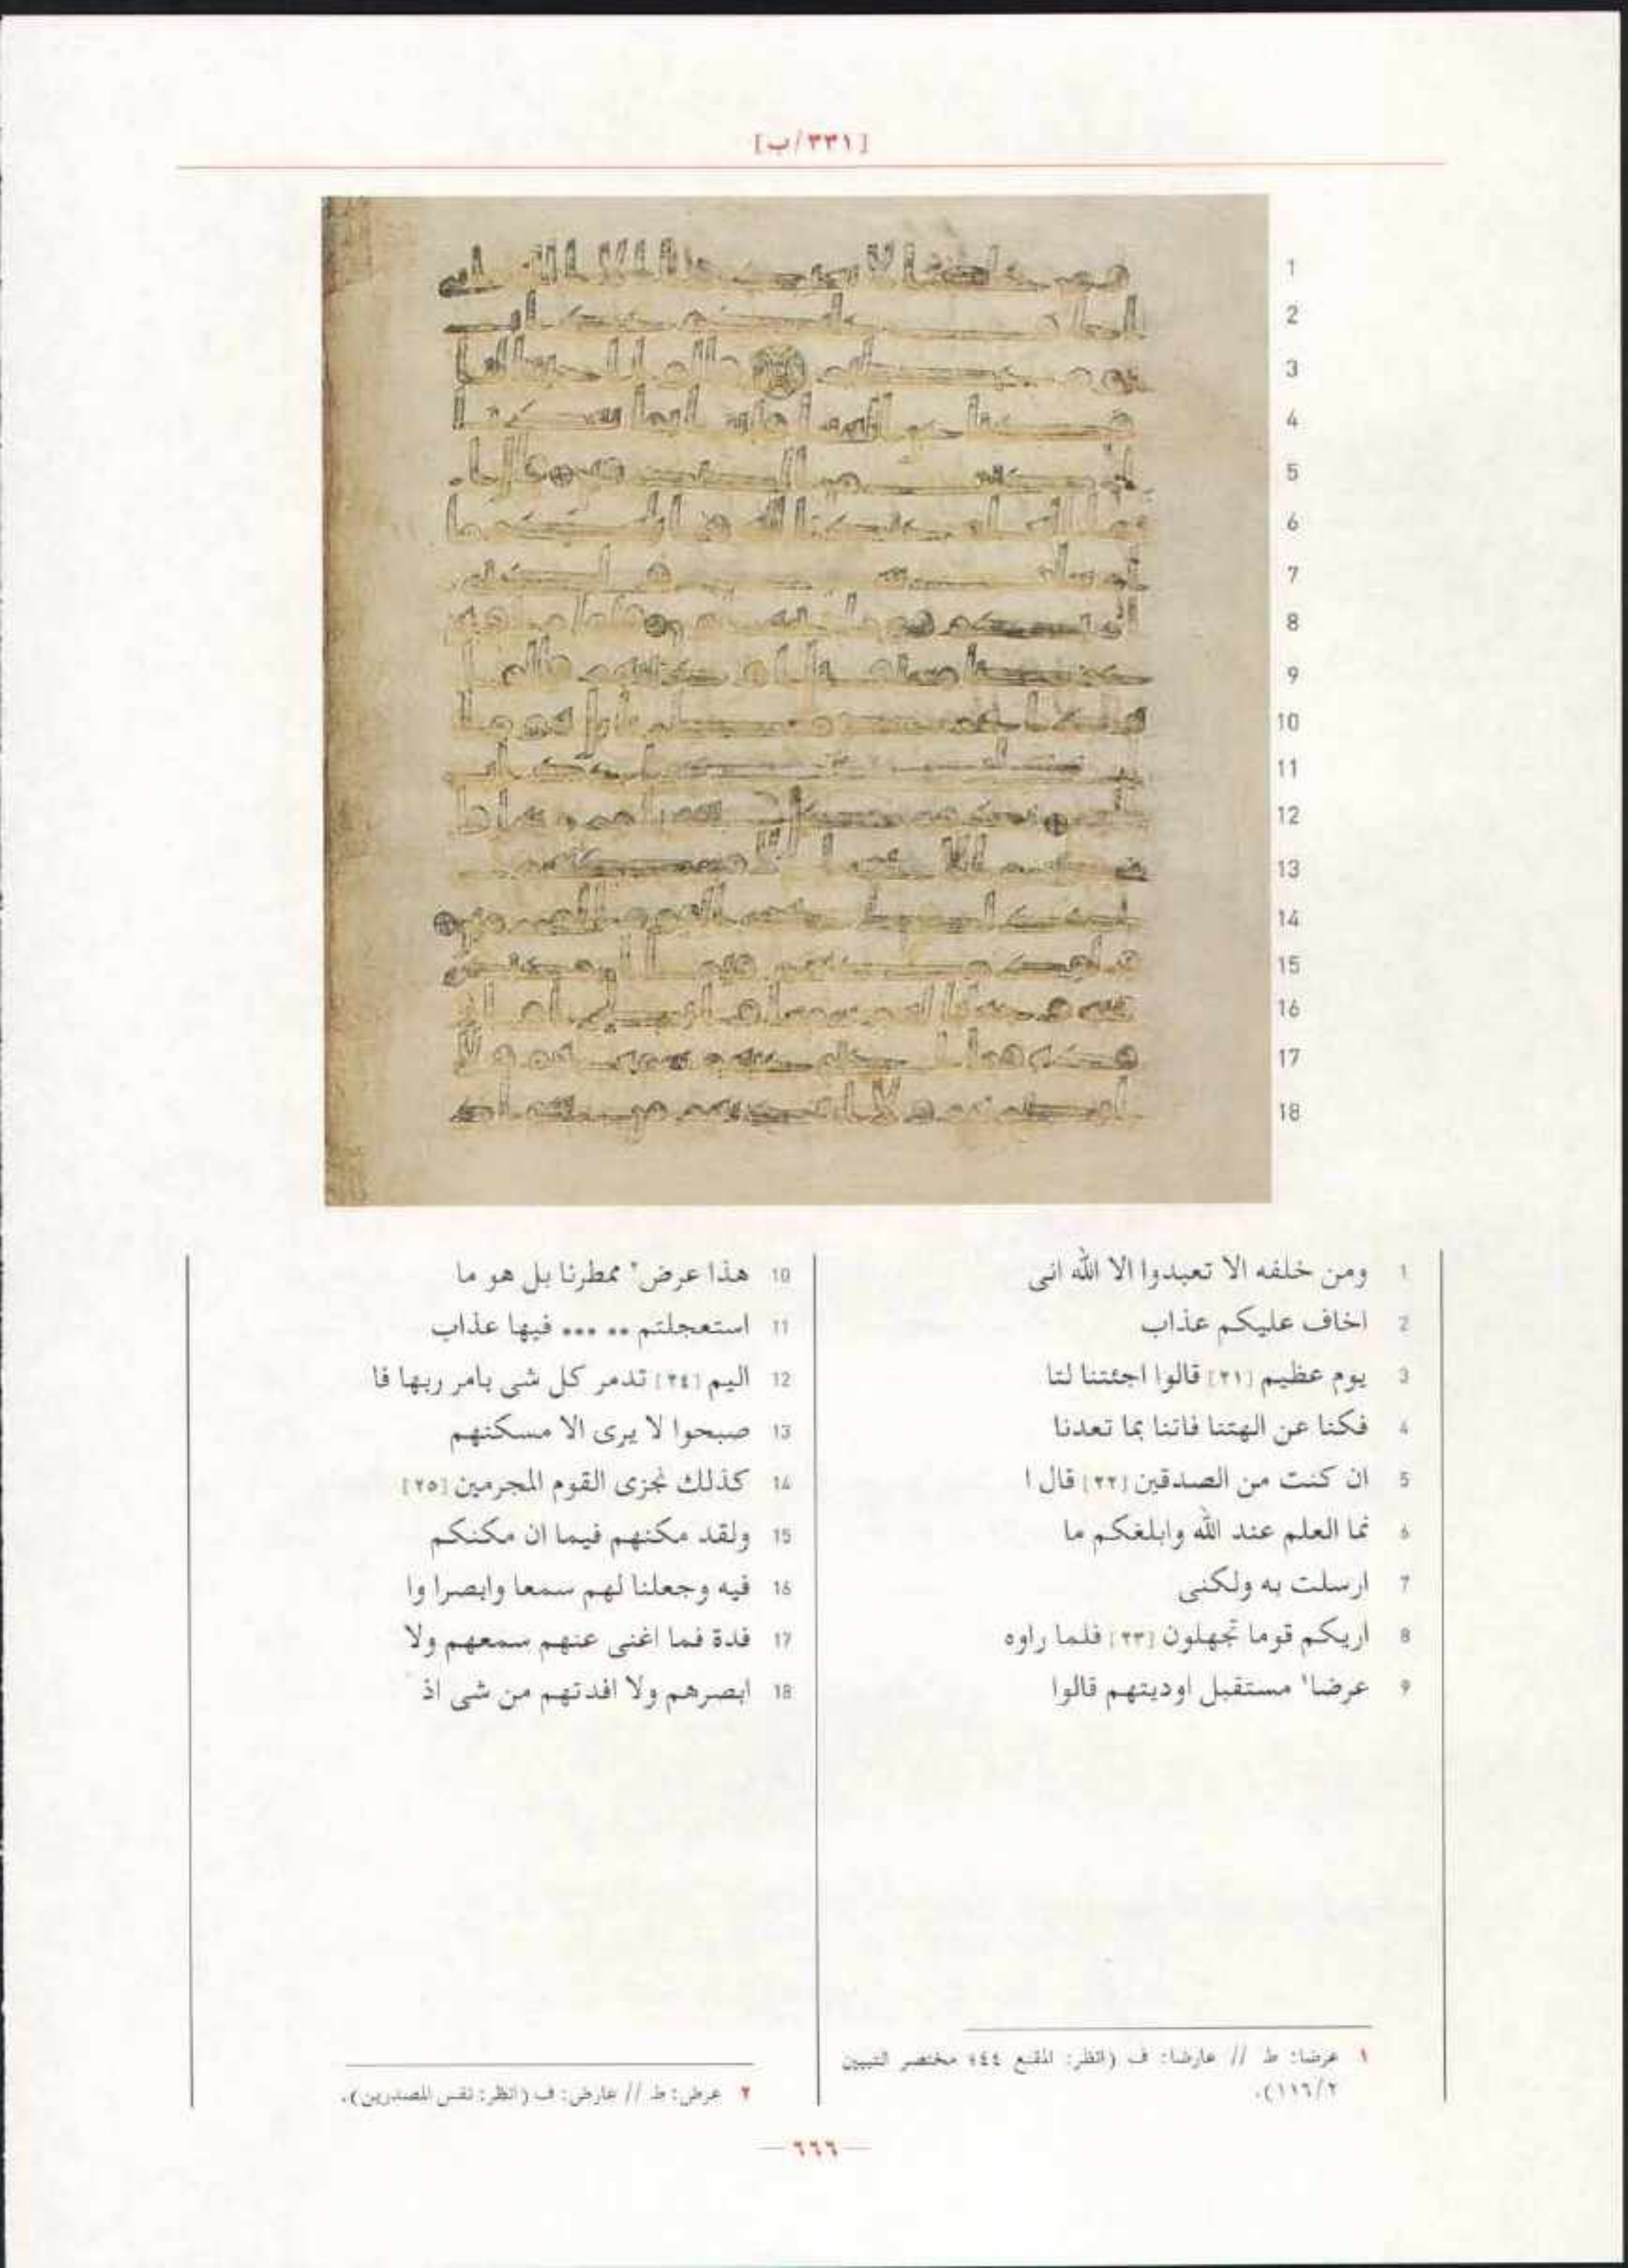 [٣٣١/ب]
1 ومن خلفه الا تعبدوا الا الله انى
2 اخاف عليكم عذاب
3 يوم عظيم [٢١] قالوا اجئتنا لتا
4 فكنا عن الهتنا فاتنا بما تعدنا
5 ان كنت من الصدقين [٢٢] قال ا
6 نما العلم عند الله وابلغكم ما
7 ارسلت به ولكنى
8 اريكم قوما تجهلون [٢٣] فلما راوه
9 عرضا١ مستقبل اوديتهم قالوا
10 هذا عرض٢ ممطرنا بل هو ما
11 استعجلتم .. ... فيها عذاب
12 اليم [٢٤] تدمر كل شى بامر ربها فا
13 صبحوا لا يرى الا مسكنهم
14 كذلك نجزى القوم المجرمين [٢٥]
15 ولقد مكنهم فيما ان مكنكم
16 فيه وجعلنا لهم سمعا وابصرا وا
17 فدة فما اغنى عنهم سمعهم ولا
18 ابصرهم ولا افدتهم من شى اذ
١ عرضا: ط // عارضا: ف (انظر: المقنع ٤٤؛ مختصر التبيين
٢/١١٦).
٢ عرض: ط // عارض: ف (انظر: نفس المصدرين).
— ٦٦٦ —